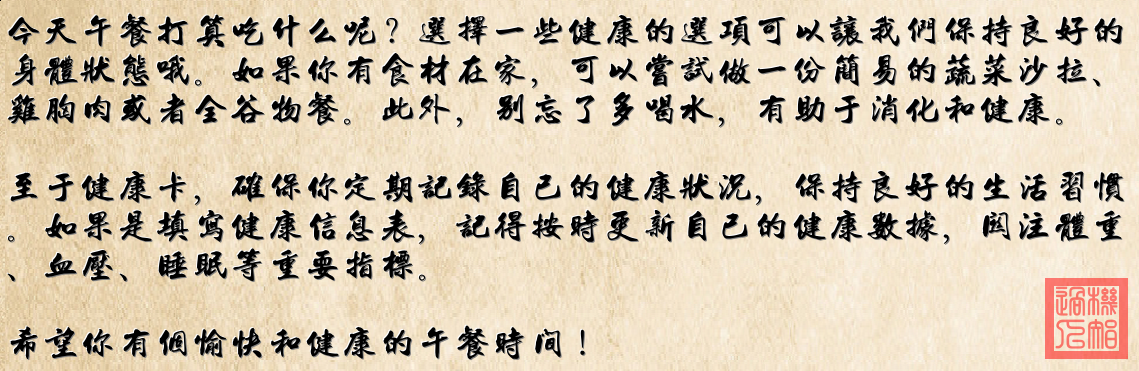 今天午餐打算吃什么呢？選擇一些健康的選項可以讓我們保持良好的
身體狀態哦。如果你有食材在家，可以嘗試做一份簡易的蔬菜沙拉、
雞胸肉或者全谷物餐。此外，别忘了多喝水，有助于消化和健康。
至于健康卡，確保你定期記錄自己的健康狀况，保持良好的生活習慣
。如果是填寫健康信息表，記得按時更新自己的健康數據，関注體重
、血壓、睡眠等重要指標。
希望你有個愉快和健康的午餐時间！